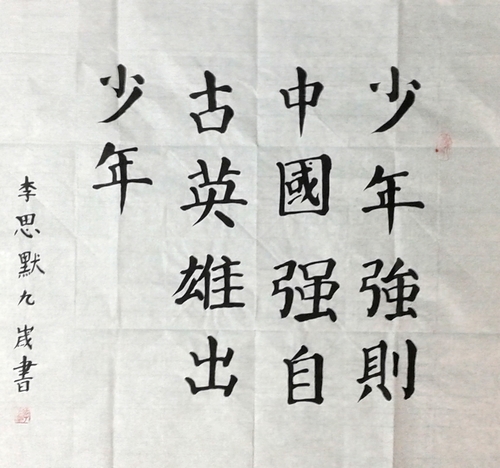 少年強則
中國强自
古英雄出
少年
李思默九歲書